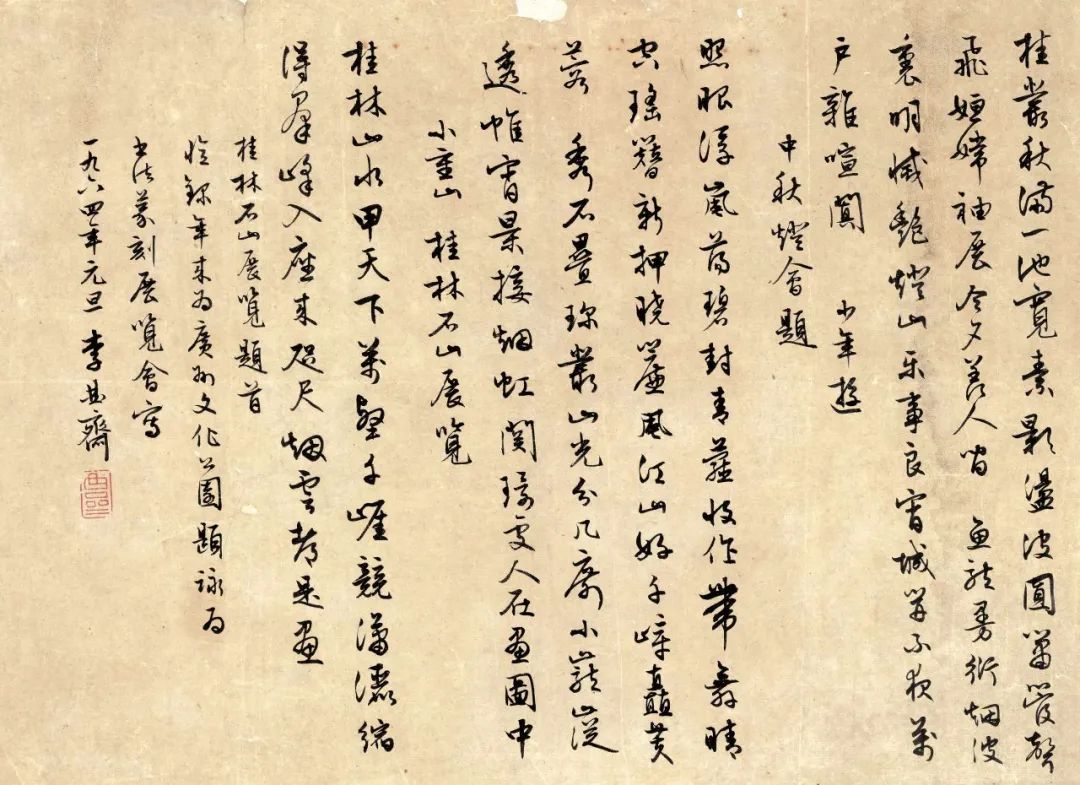 桂叢秋滿一池寬素影盪波圓簫管聲
飛姮嫦袖展今夕羨人間 魚龍曼衍烟波
裏明滅艷燈山乐事良宵城開不夜萬
戶雜喧闐 少年遊
中秋燈會題
照眼浮嵐蕩碧封青蘿收作帶舞晴
空瑤簪新押曉簾風江山好千嶂矗芙
蓉 秀石疊琼叢山光分几席小巃嵷
透帷宵景接烟虹處人在畫圖中
小重山 桂林石山展覽
桂林山水甲天下萬壑千崖競瀟灑縮
得羣峰入座来咫尺烟雲都是畫
桂林石山展覽題首
錄年来為廣州文化公園題詠為
書法篆刻展覽會寫
一九六四年元旦 李曲齋